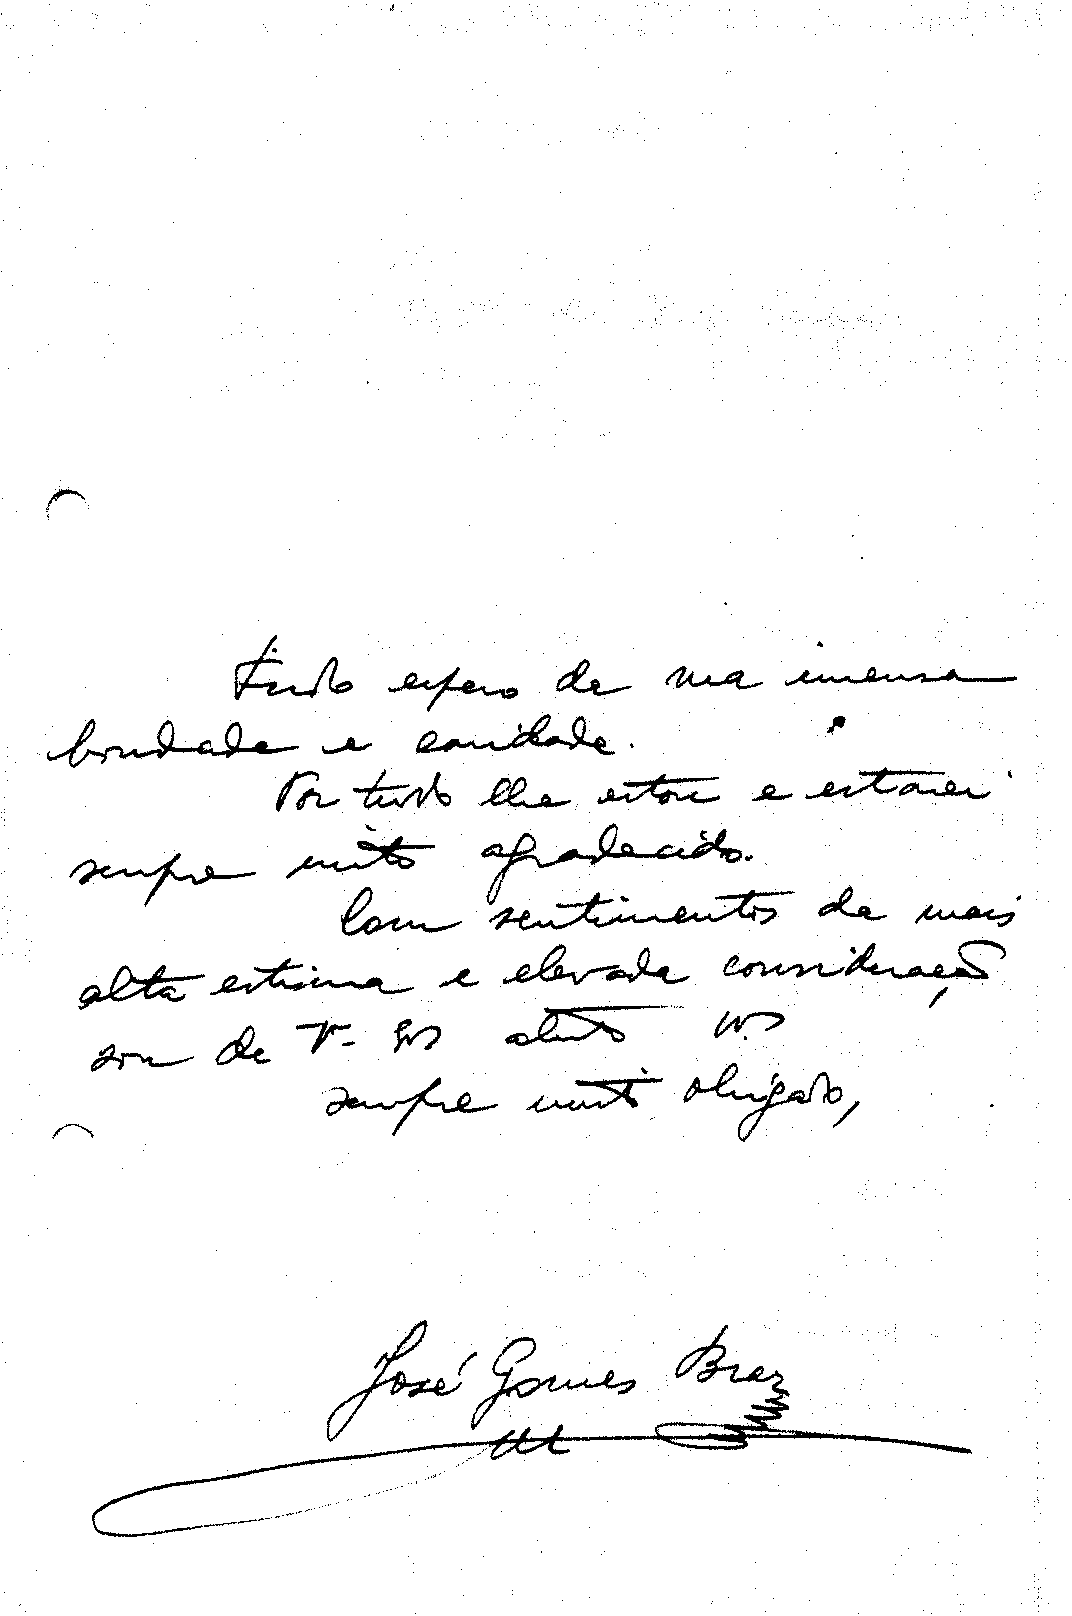 Tudo espero de sua imensa
bondade e caridade.
Por tudo lhe estou e estarei
sempre muito agradecido.
Com sentimentos da mais
alta estima e elevada consideração
sou de V-
sempre muito obrigado,
José Gomes Braz